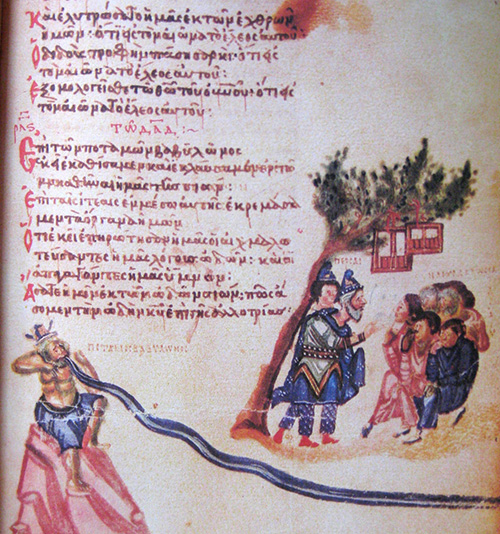 Καὶ ἐλυτρώσατο ἡμᾶς ἐκ τῶν ἐχθρῶν
ἡμῶν· ὅτι εἰς τὸν αἰῶνα τὸ ἔλεος αὐτοῦ:
Ὁ διδοὺς τροφὴν πάσῃ σαρκί· ὅτι εἰς
τὸν αἰῶνα τὸ ἔλεος αὐτοῦ:
Ἐξομολογεῖσθε τῷ θῷ τοῦ οὐνοῦ· ὅτι εἰς
τὸν αἰῶνα τὸ ἔλεος αὐτοῦ:
ΡΛϚ ΤΩ ΔΑΔ
Ἐπὶ τῶν ποταμῶν Βαβυλῶνος
ἐκεῖ ἐκαθίσαμεν καὶ ἐκλαύσαμεν ἐν τῷ
μνησθῆναι ἡμᾶς τῆς Σιών:
Ἐπὶ ταῖς ἰτέαις ἐν μέσῳ αὐτῆς ἐκρεμάσα
μεν τὰ ὄργανα ἡμῶν
Ὅτι ἐκεῖ ἐπηρώτησαν ἡμᾶς οἱ αἰχμαλω
τεύσαντες ἡμᾶς λόγους ᾠδῶν· καὶ οἱ
ἀπαγαγόντες ἡμᾶς ὕμνον:
Ἄσατε ἡμῖν ἐκ τῶν ᾠδῶν Σιών: πῶς ᾄ
σομεν τὴν ᾠδὴν κυ ἐπὶ γῆς ἀλλοτρίας: